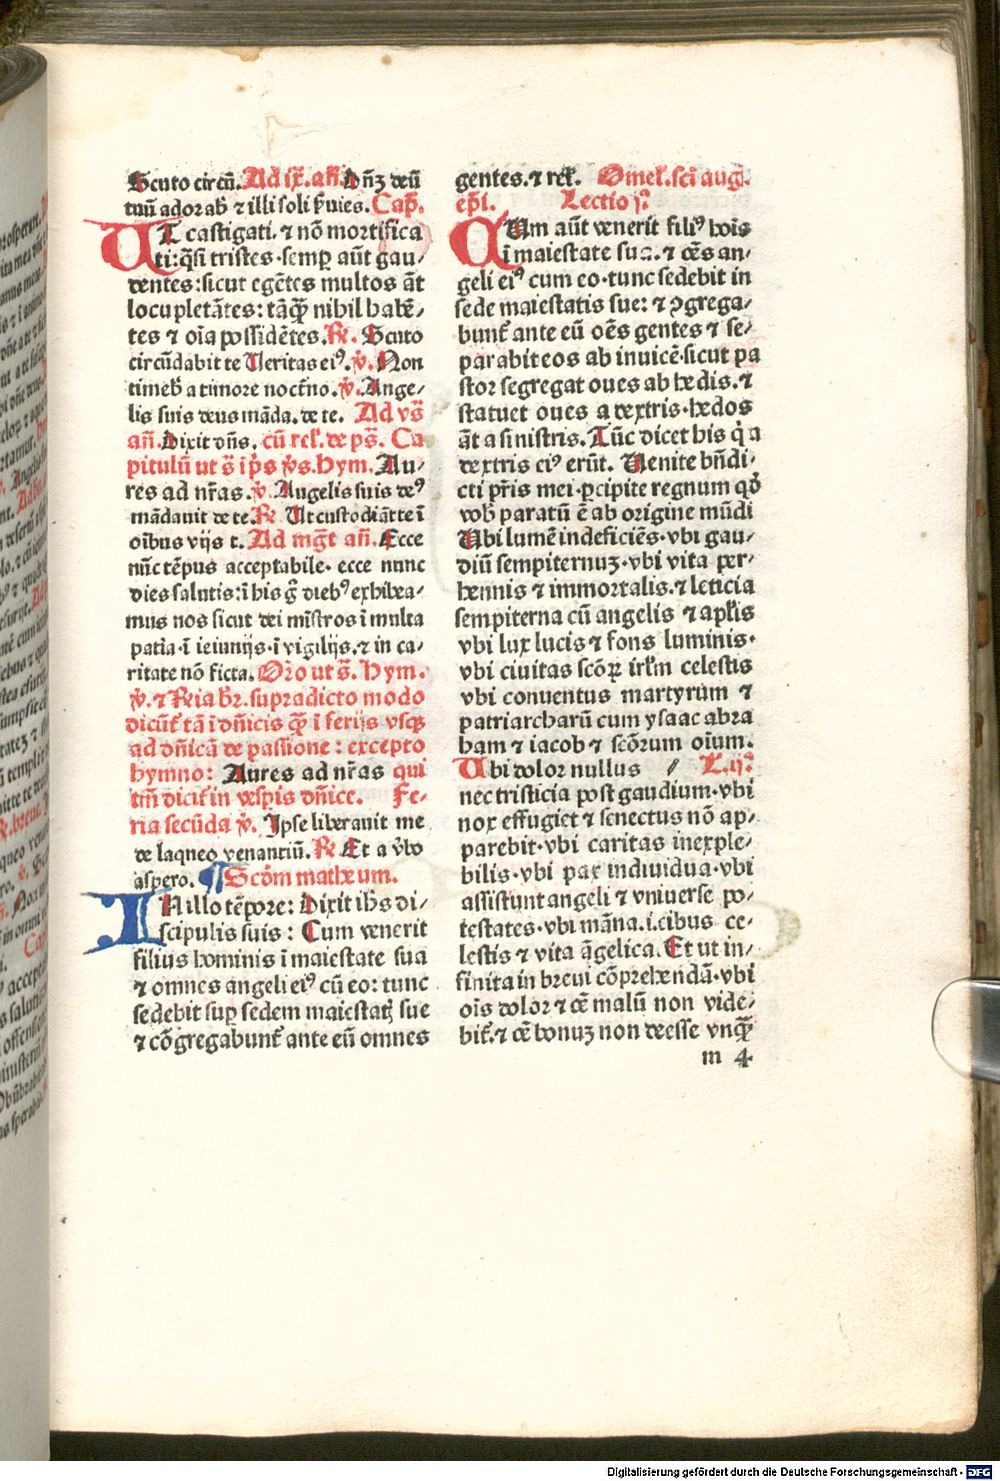 Scuto circū. Ad ix. an̄. Dn̄ꝫ deū
tuū adorab̄ ⁊ illi soli ẜuies. Cap̄.
UT castigati. ⁊ nō mortifica
ti: q̄si tristes · semꝑ aūt gau⸗
dentes: sicut egētes multos āt
locupletātes: tāqȝ nihil habē⸗
tes ⁊ oīa possidētes. ℟. Scuto
circūdabit te Ueritas eiꝰ. ℣. Non
timeb̄ a timore noctr̄no. ℣. Ange⸗
lis suis deus māda. de te. Ad vs̄
an̄. Dixit dn̄s. cū rel̄. de ps̄. Ca
pitulū ut s̄ ip̄s v̄s. hym. Au⸗
res ad nr̄as. ℣. Angelis suis deꝰ
mādauit de te. ℟. Ut custodiāt te ī
oībus vijs t. Ad mḡt an̄. Ecce
nūc tēpus acceptabile · ecce nunc
dies salutis: ī his ḡ diebꝰ exhibea⸗
mus nos sicut dei mīstros ī multa
patīa · ī ieiunijs · ī vigilijs. ⁊ in ca⸗
ritate nō ficta. Or̄o ut s̄. Hym.
℣. ⁊ R̄ia br̄. supradicto modo
dicūt̄ tā ī dn̄icis qȝ ī ferijs vsqȝ
ad dn̄icā de passione : excepto
hymno: Aures ad nr̄as qui
tm̄ dicit̄ in vesp̄is dn̄ice. Fe⸗
ria secūda ℣. Ipse liberauit me
de laqueo venantiū. ℟. Et a v̄bo
aspero. ¶ Scōm matheum.
IN illo tēpore: Dixit ih̄s di⸗
scipulis suis: Cum venerit
filius hominis ī maiestate sua
⁊ omnes angeli eiꝰ cū eo: tunc
sedebit suꝑ sedem maiestatꝭ sue
⁊ cōgregabunt̄ ante eū omnes
gentes. ⁊ rel̄. Omel̄. sci auḡ.
ep̄i. Lectio j.ᵃ
CUm aūt venerit filiꝰ hoīs
ī maiestate sua. ⁊ oēs an⸗
geli eiꝰ cum eo · tunc sedebit in
sede maiestatis sue: ⁊ ꝯgrega⸗
bunt̄ ante eū oēs gentes ⁊ se⸗
parabit eos ab inuicē · sicut pa
stor segregat oues ab hedis. ⁊
statuet oues a dextris · hedos
āt a sinistris. Tūc dicet his q̇ a
dextris eiꝰ erūt. Uenite bn̄di⸗
cti pr̄is mei · ꝑcipite regnum qd̄
vob̄ paratū ē ab origine mūdi
Ubi lumē indeficiēs · vbi gau⸗
diū sempiternuꝫ · vbi vita per⸗
hennis ⁊ immortalis. ⁊ leticia
sempiterna cū angelis ⁊ apl̄is
vbi lux lucis ⁊ fons luminis ·
vbi ciuitas scōꝝ irl̄m celestis
vbi conuentus martyrum ⁊
patriarcharū cum ysaac abra
ham ⁊ iacob ⁊ scōrum oīum.
Ubi dolor nullus // L. ij.ᵃ
nec tristicia post gaudium · vbi
nox effugiet ⁊ senectus nō ap⸗
parebit · vbi caritas inexple⸗
bilis · vbi pax indiuidua · vbi
assistunt angeli ⁊ vniuerse po⸗
testates · vbi māna. i. cibus ce⸗
lestis ⁊ vita āgelica. Et ut in⸗
finita in breui cōprehendā · vbi
oīs dolor ⁊ oē malū non vide⸗
bit̄. ⁊ oē bonuꝫ non deesse vnqȝ
m 4
Digitalisierung gefördert durch die Deutsche Forschungsgemeinschaft - DFG